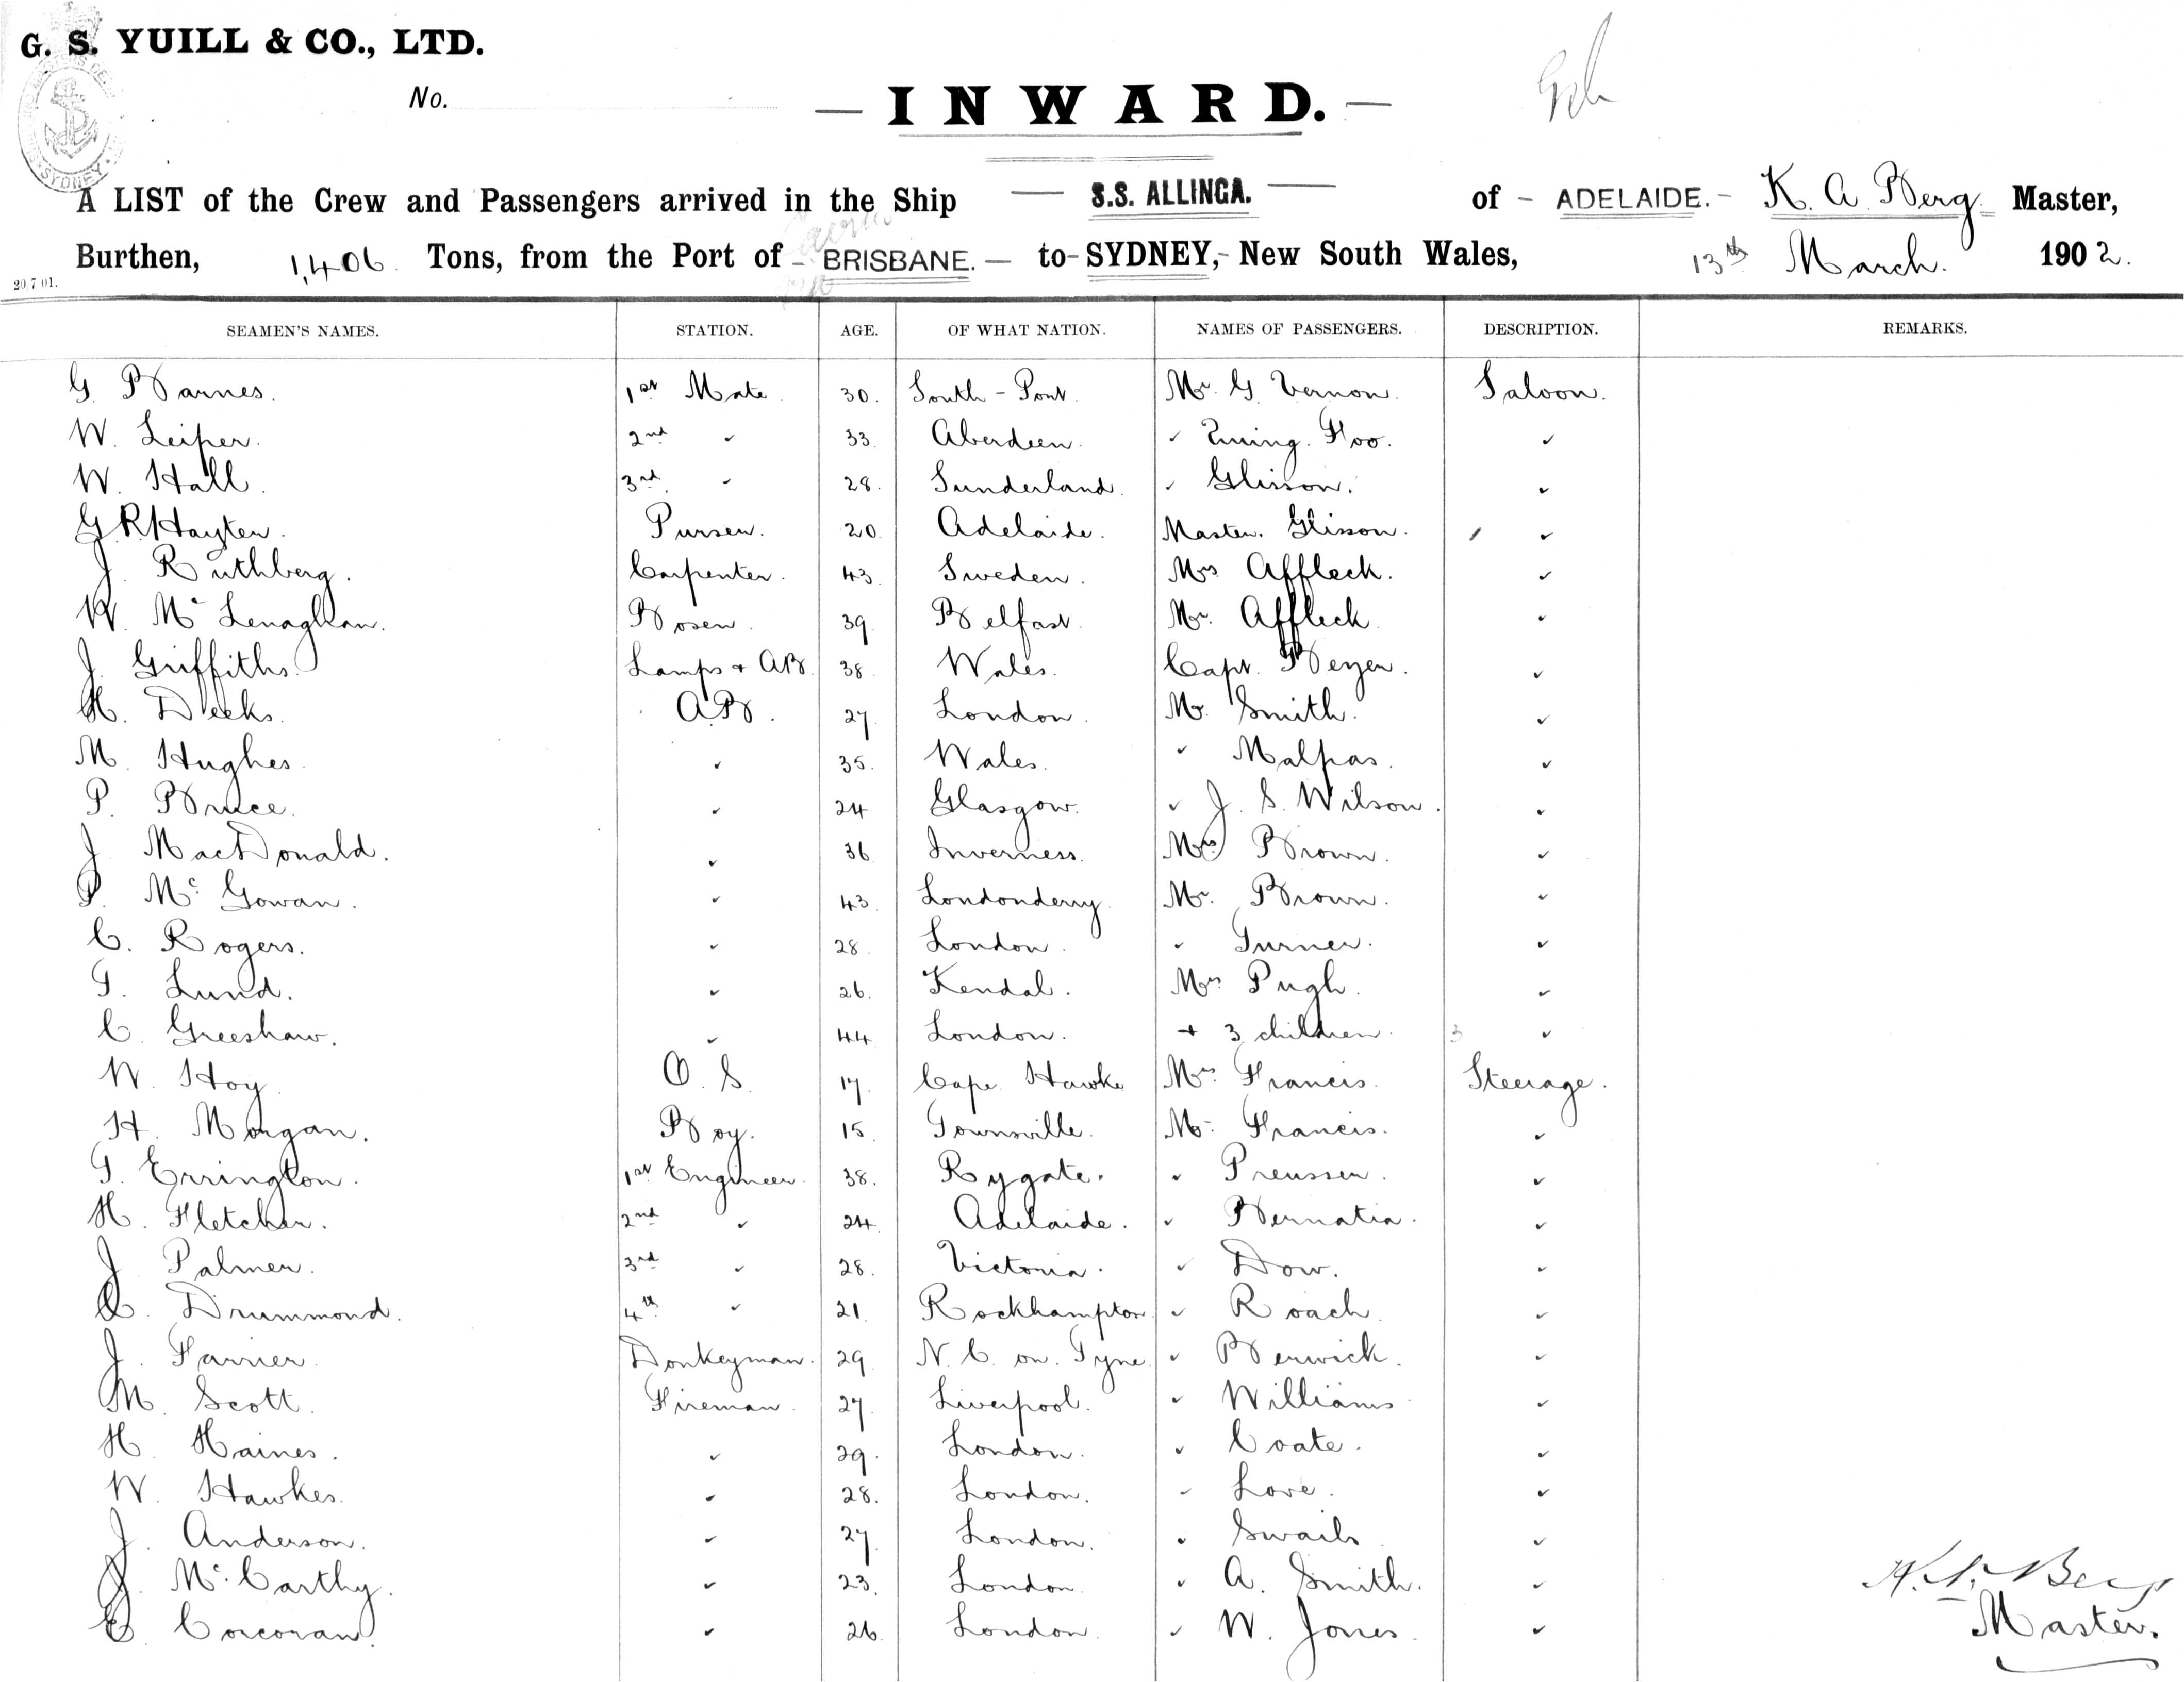 G. S. YUILL & CO., LTD.
No.
— INWARD. —
A LIST of the Crew and Passengers arrived in the Ship — S.S. ALLINGA. — of - ADELAIDE. - K. A. Berg. Master,
Burthen, 1,406 Tons, from the Port of - BRISBANE. — to - SYDNEY, - New South Wales, 13th March. 1902.
20.7.01.
SEAMEN'S NAMES. STATION. AGE. OF WHAT NATION. NAMES OF PASSENGERS. DESCRIPTION. REMARKS.
G. Barnes. 1st Mate 30. South-Port. Mr. G. Vernon. Saloon.
W. Leiper. 2nd " 33. Aberdeen. " Foo. "
W. Hall. 3rd " 28. Sunderland. " Glisson. "
G R Hayter. Purser. 20. Adelaide. Master. Glisson. "
J Ruthberg. Carpenter. 43. Sweden. Mrs Affleck. "
W. Mc Lenaghan. Bosen. 39. Belfast. Mr. Affleck. "
J. Griffiths. Lamps + AB. 38. Wales. Capt. Beyer. "
H. Deeks. AB. 27. London. Mr. Smith. "
M. Hughes. " 35. Wales. " Malpas. "
P. Bruce. " 24 Glasgow. " J. S. Wilson. "
J MacDonald. " 36 Inverness. Mrs Brown. "
P. Mc Gowan. " 43. Londonderry. Mr. Brown. "
C. Rogers. " 28. London. " Turner. "
T. Lund. " 26. Kendal. Mrs Pugh. "
C. Greeshaw. " 44 London. + 3 children 3 "
W. Hoy O. S. 17. Cape Hawke Mrs Francis. Steerage.
H. Morgan. Boy. 15. Townsville. Mr. Francis. "
T. Errington. 1st Engineer. 38. Rygate. " Preussen. "
H. Fletcher. 2nd " 24. Adelaide. " Bernatia. "
J Palmer. 3rd " 28. Victoria. " Dow. "
Drummond. 4th " 21. Rockhampton " Roach. "
J. Farrier. Donkeyman. 29. N. C. on. Tyne. " Berwick. "
M. Scott. Fireman. 27. Liverpool. " Williams "
H. Haines. " 29. London. " Coate. "
W. Hawkes. " 28. London. " Love. "
J. Anderson. " 27 London. " Swails "
J. Mc Carthy. " 23. London. " A. Smith. "
C. Corcoran. " 26. London. " W. Jones. "
K. A. Berg
Master.